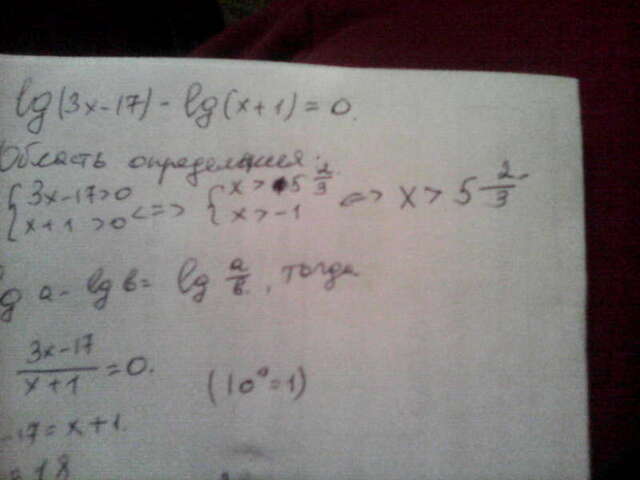 lg(3x-17) - lg(x+1) = 0.
Область определения:
{3x-17>0 <=> {x > 5 2/3 <=> x > 5 2/3
{x+1>0 {x > -1
lg a - lg b = lg a/b, тогда
3x-17/x+1 = 0. (10⁰=1)
-17 = x+1.
= 18